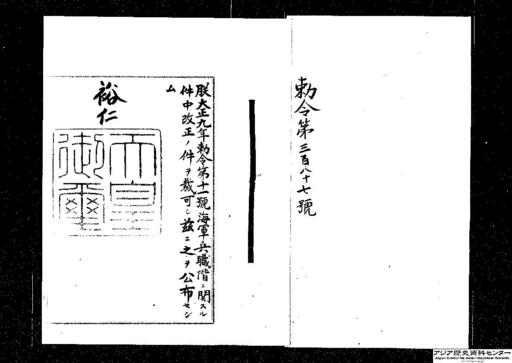 勅令第三百八十七號
朕大正九年勅令第十一號海軍兵職階ニ關スル
件中改正ノ件ヲ裁可シ茲ニ之ヲ公布セシ
ム
裕仁
天皇
御璽
アジア歴史資料センター
Japan Center for Asian Historical Records